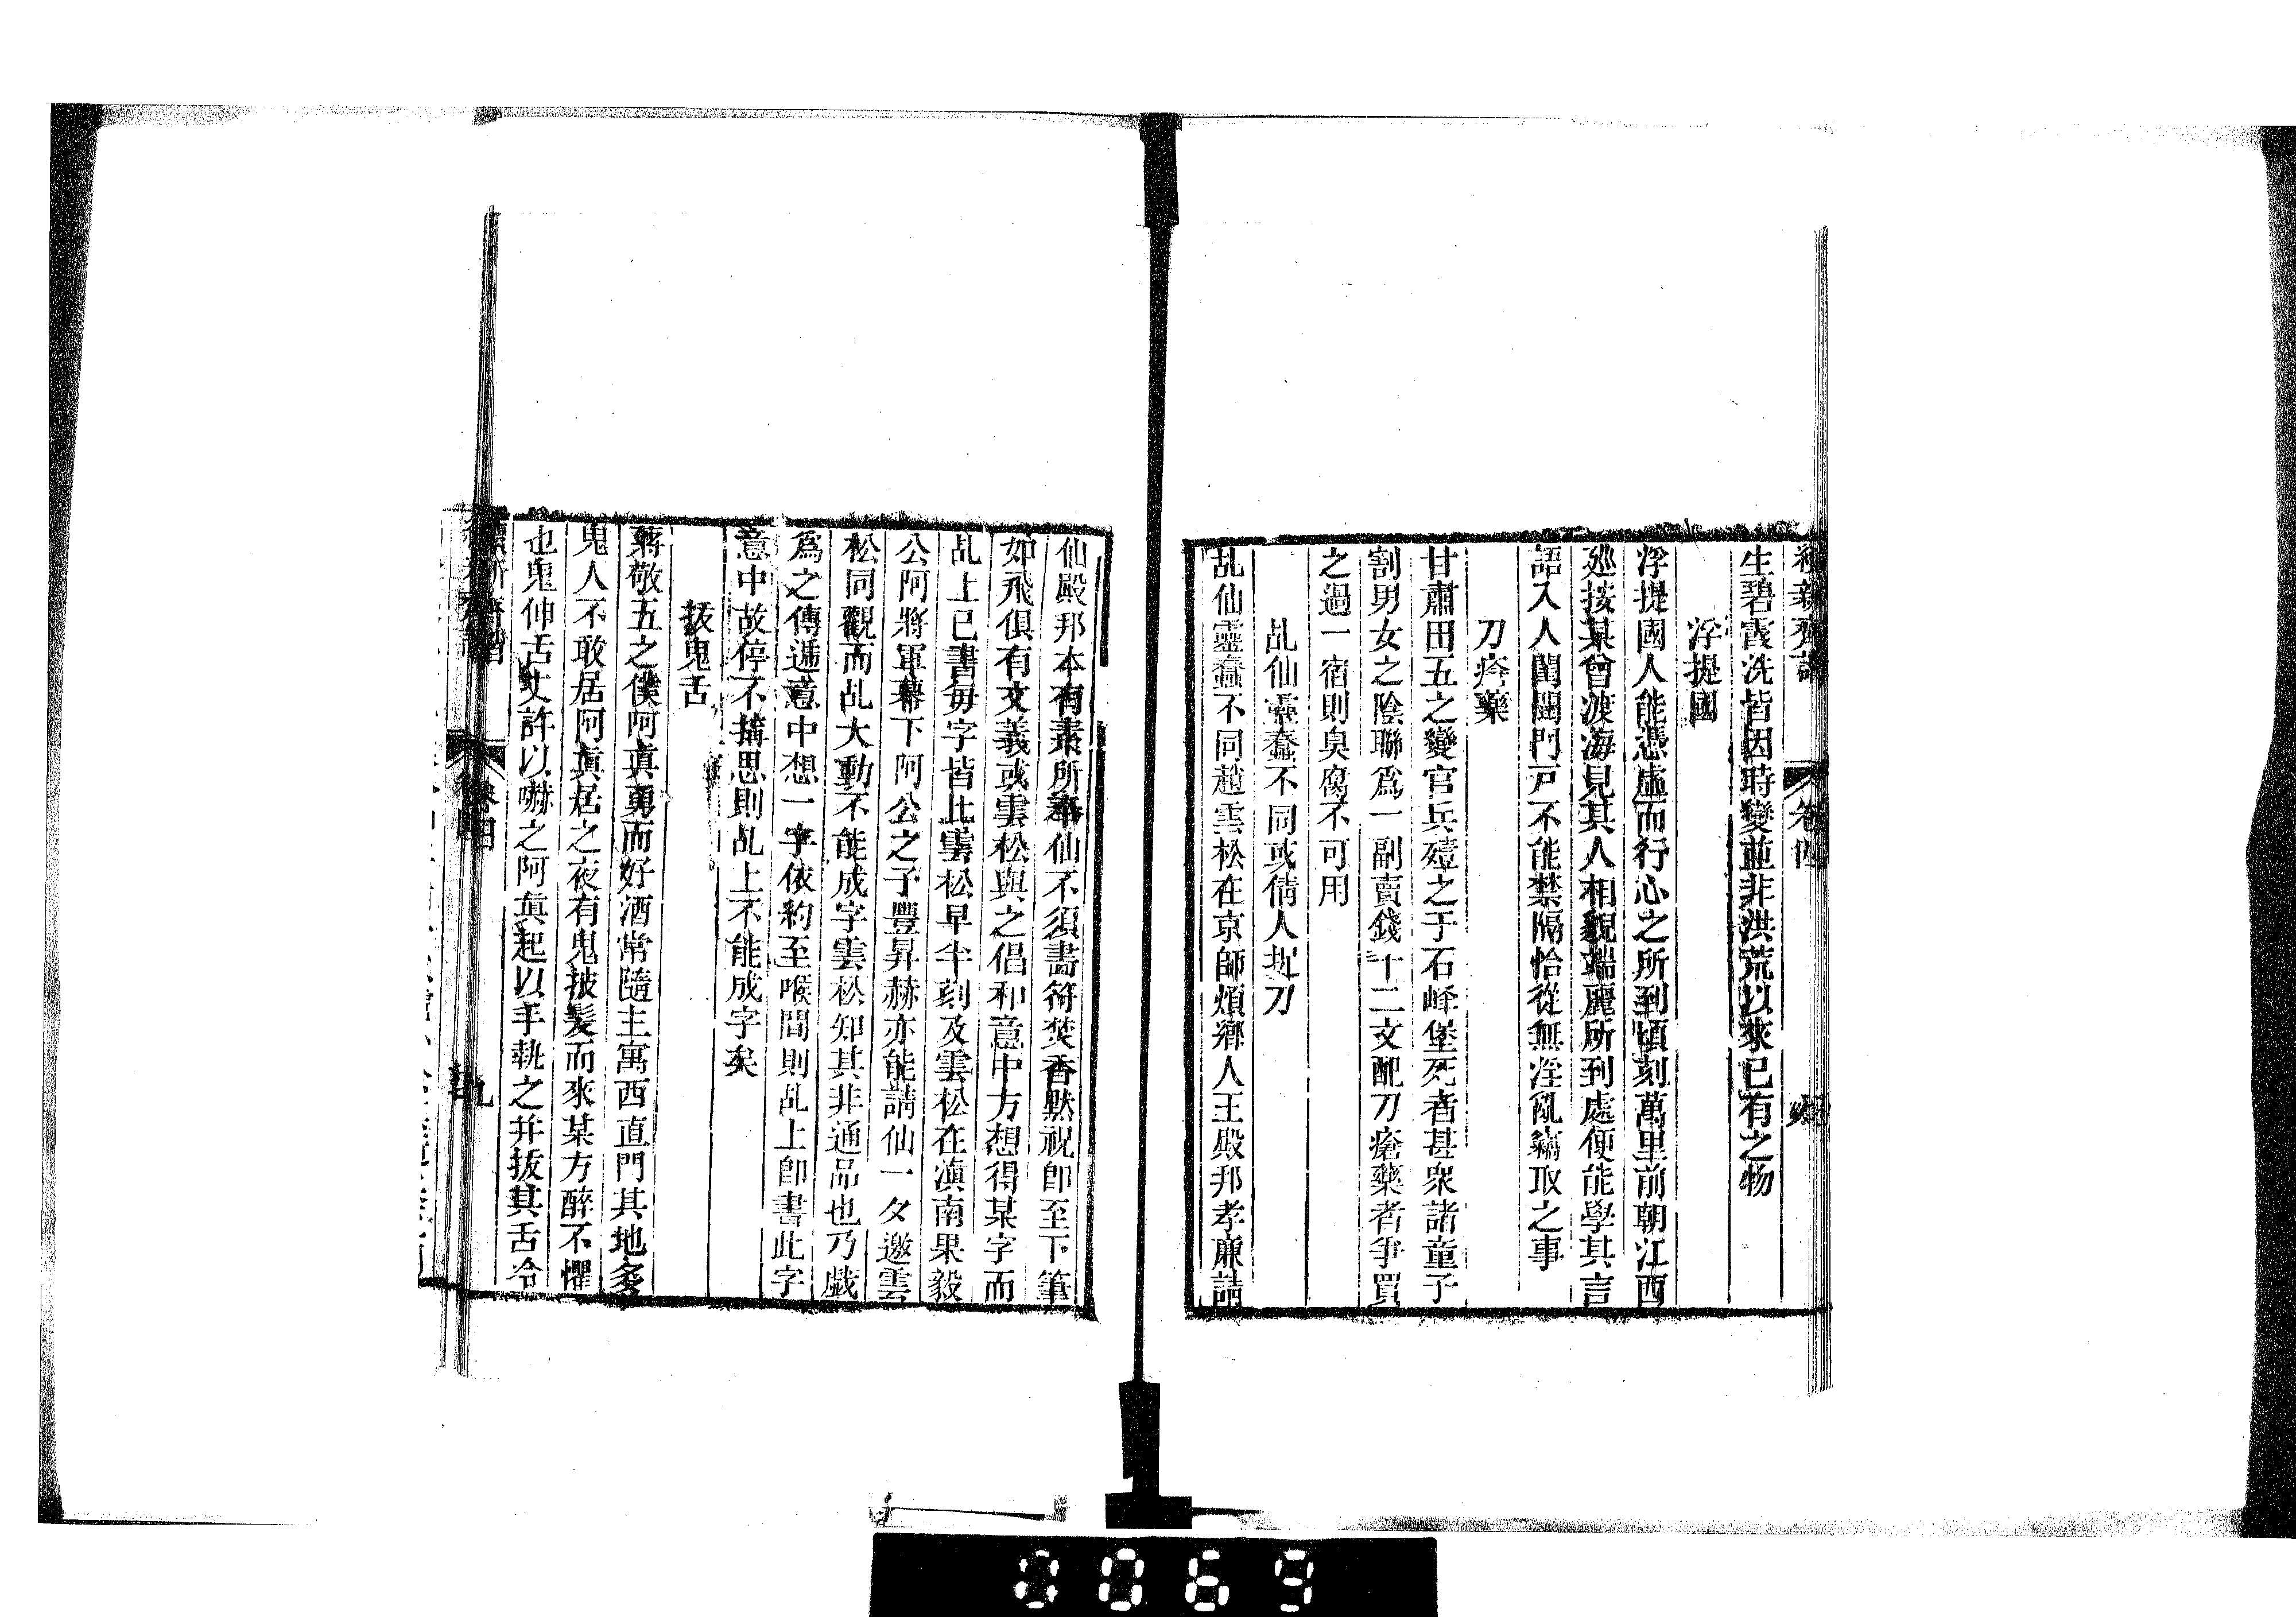 生碧霞洗皆因時變並非洪荒以來已有之物
浮提國
浮提國人能憑虛而行心之所到頃刻萬里前朝江西
廵按某曾渡海見其人相貌端麗所到處便能學其言
語入人閨闥門戸不能禁隔恰從無淫亂竊取之事
刀瘡藥
甘肅田五之變官兵殪之于石峰堡死者甚衆諸童子
割男女之陰聯爲一副賣錢十二文配刀瘡藥者爭買
之過一宿則臭腐不可用
乩仙靈蠢不同或倩人捉刀
乩仙靈蠢不同趙雲松在京師煩鄉人王殿邦孝廉請
仙殿邦本有素所奉仙不須書符焚香默祝卽至下筆
如飛俱有文義或雲松與之倡和意中方想得某字而
乩上已書毎字皆比雲松早半刻及雲松在滇南果毅
公阿將軍幕下阿公之子豐昇赫亦能請仙一夕邀雲
松同觀而乩大動不能成字雲松知其非通品也乃戲
爲之傳遞意中想一字依約至喉間則乩上卽書此字
意中故停不搆思則乩上不能成字矣
拔鬼舌
蔣敬五之僕阿眞勇而好酒常隨主寓西直門其地多
鬼人不敢居阿眞居之夜有鬼披髮而來某方醉不懼
也鬼伸舌丈許以嚇之阿眞起以手執之幷拔其舌冷
卷四
九
0069